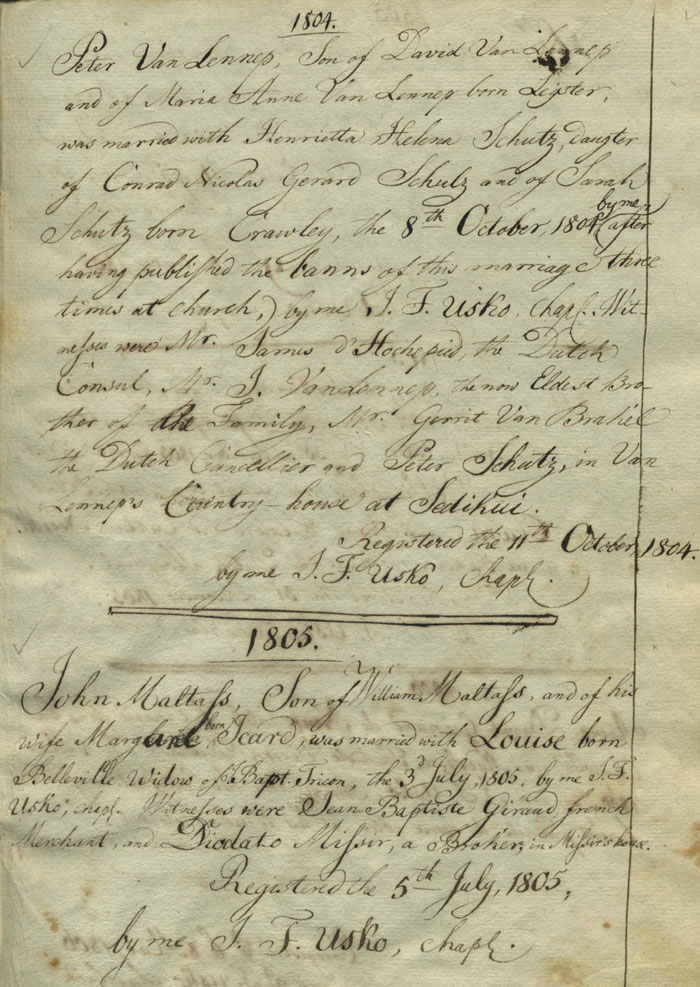 1804.
Peter Van Lennep, Son of David Van Lennep
and of Maria Anne Van Lennep born Leyster,
was married with Henrietta Helena Schutz, daugter
of Conrad Nicolas Gerard Schutz and of Sarah
by me
Schutz born Crawley, the 8th October, 1804, (after
having published the banns of this marriage three
times at church,) by me J. F. Usko, chapl. Wit-
nesses were Mr. James d'Hochepied, the Dutch
Consul, Mr. J. Van Lennep, the now Eldest Bro-
ther of the Family, Mr. Gerrit Van Brakel
the Dutch Cancellier and Peter Schutz, in Van
Lennep's Country-house at Sedikui.
Registered the 11th October, 1804.
by me J. F. Usko, Chapl.
1805.
John Maltass, Son of William Maltass, and of his
born
wife Margaret Icard, was married with Louise born
Belleville Widow of Bapt. Tricon, the 3d July, 1805, by me J. F.
Usko, chapl. Witnesses were Jean Baptiste Giraud, french
Merchant, and Diodato Missir, a Broker, in Missir's house.
Registered the 5th July, 1805,
by me J. F. Usko, chapl.